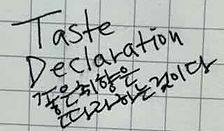 Taste
Declaration
좋은취향은
따라하는것이다